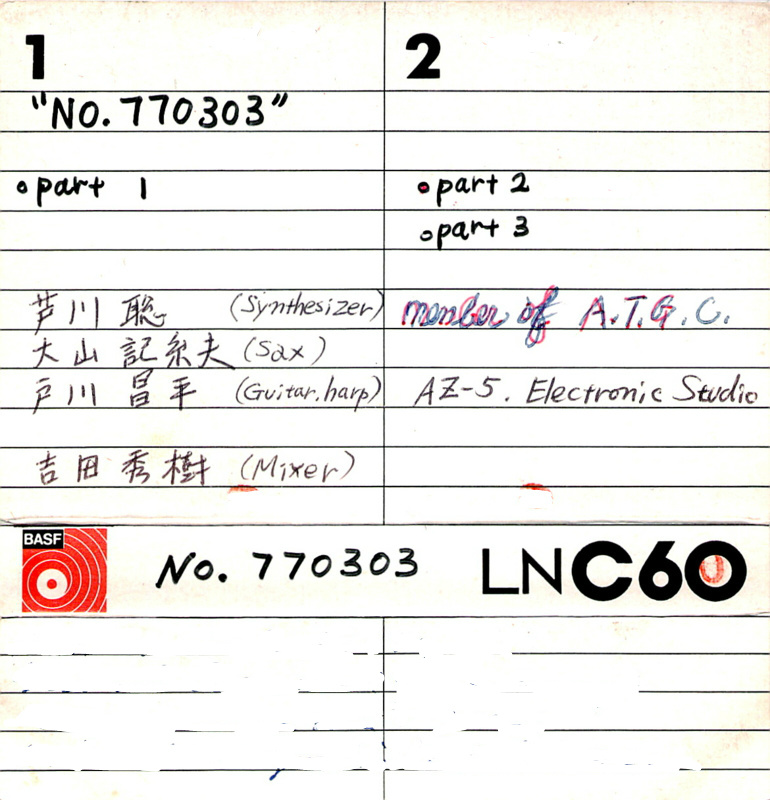 1
"NO. 770303"
• part 1
芦川 聡 (Synthesizer)
大山 記糸夫 (Sax)
戸川 昌平 (Guitar. harp)
吉田 秀樹 (Mixer)
2
• part 2
• part 3
member of A.T.G.C.
AZ-5. Electronic Studio
BASF
No. 770303
LNC60